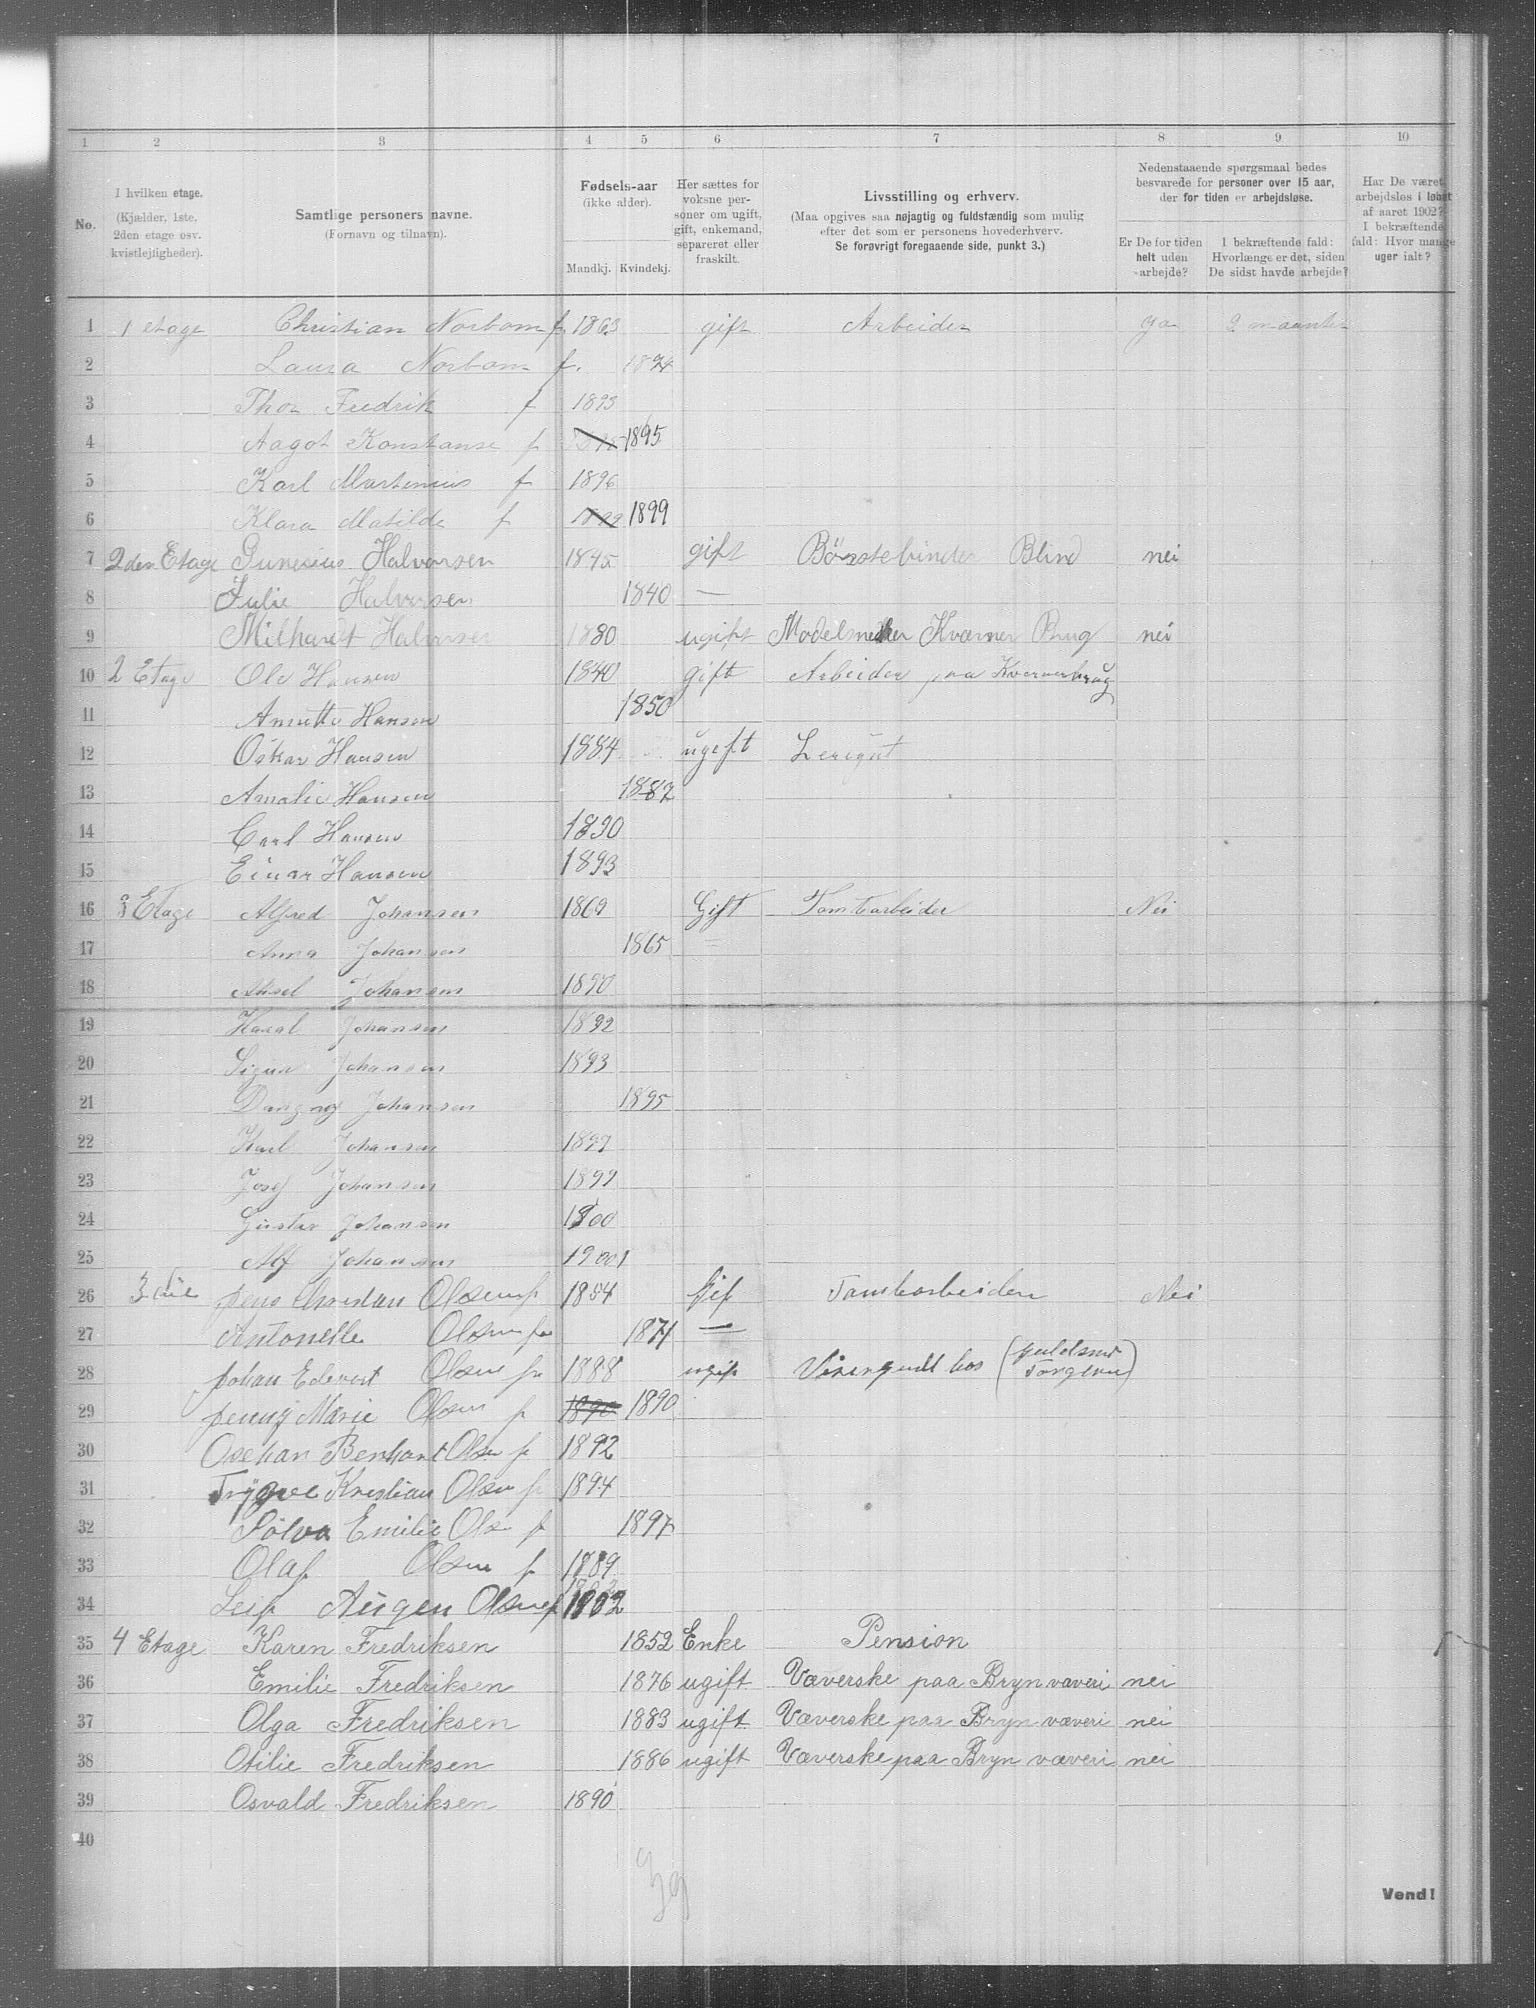 1 2 3 4 5 6 7 8 9 10
No.
I hvilken etage.
(Kjælder, 1ste,
2den etage osv.
kvistlejligheder).
Samtlige personers navne.
(Fornavn og tilnavn).
Fødsels-aar
(ikke alder).
Mandkj. Kvindekj.
Her sættes for
voksne per-
soner om ugift,
gift, enkemand,
separeret eller
fraskilt.
Livsstilling og erhverv.
(Maa opgives saa nøjagtig og fuldstændig som mulig
efter det som er personens hovederhverv.
Se forøvrigt foregaaende side, punkt 3.)
Nedenstaaende spørgsmaal bedes
besvarede for personer over 15 aar,
der for tiden er arbejdsløse.
Er De for tiden
helt uden
arbejde?
I bekræftende fald:
Hvorlænge er det, siden
De sidst havde arbejde?
Har De været
arbejdsløs i løbet
af aaret 1902?
I bekræftende
fald: Hvor mange
uger ialt?
1 1 etage Christian Norbom f. 1863 gift Arbeider ja 2 maanter
2 Laura Norbom f. 1874
3 Thor Fredrik f 1893
4 Aagot Konstanse f 1895
5 Karl Martenius f 1896
6 Klara Matilde f 1899 1899
7 2den Etage Gunerius Halvorsen 1845 gift Børstebinder Blind nei
8 Julie Halvorsen 1840 —
9 Milhardt Halvorsen 1880 ugift Modelsnekker Kværner Brug nei
10 2 Etage Ole Hansen 1840 gift Arbeider paa Kvernerbrug
11 Anette Hansen 1850
12 Oskar Hansen 1884 ugift
13 Amalie Hansen 1887
14 Carl Hansen 1890
15 Einar Hansen 1893
16 3 Etage Alfred Johansen 1869 Gift Tomtearbeider Nei
17 Anna Johansen 1865 =
18 Aksel Johansen 1890
19 Haral Johansen 1892
20 Sigur Johansen 1893
21 Johansen 1895
22 Karl Johansen 1897
23 Josef Johansen 1899
24 Gustav Johansen 1900
25 Alf Johansen 1901
26 3die Jens Christian Olsen f 1854 Gif Tomtearbeider Nei
27 Antonette Olsen f 1871 —
28 Johan Edevart Olsen f 1888 ugif Visergutt hos (guldsmed Torgersen)
29 Jenny Marie Olsen f 1890 1890
30 Benhart Olsen f 1892
31 Trygve Kristian Olsen f 1894
32 Sølva Emilie Olsen f 1897
33 Olaf Olsen f 1889
34 Leif Olsen f 1902 1902
35 4 Etage Karen Fredriksen 1852 Enke Pension
36 Emilie Fredriksen 1876 ugift Væverske paa Bryn væveri nei
37 Olga Fredriksen 1883 ugift Væverske paa Bryn væveri nei
38 Otilie Fredriksen 1886 ugift Væverske paa Bryn væveri nei
39 Osvald Fredriksen 1890
40
39
Vend!